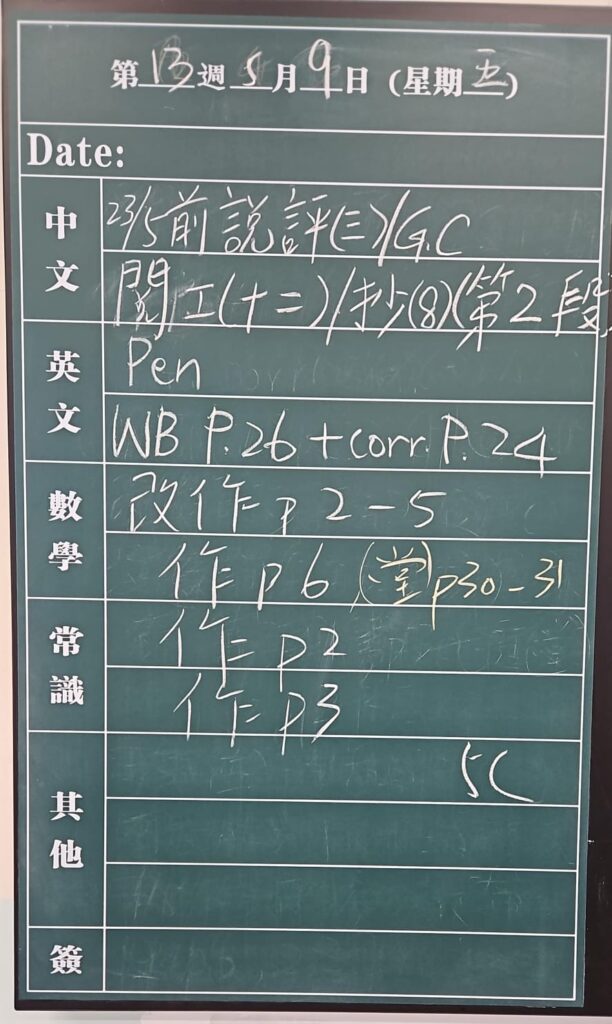 第13週5月9日(星期五)
Date:
中文
23/5前說評(三)/G.C
閱工(十二)/抄(8)(第2段
英文
Pen
WB P.26+corr.P.24
數學
改作p2-5
作p6 (堂)p30-31
常識
作p2
作p3
其他
5C
簽